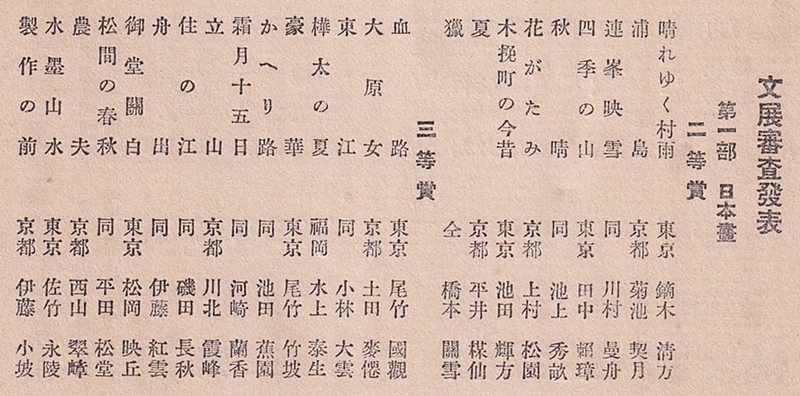 文展審查發表
第一部 日本畫
二等賞
晴れゆく村雨 東京 鏑木 清方
浦島 京都 菊池 契月
連峯映雪 同 川村 曼舟
四季の山 東京 田中 賴璋
秋晴 同 池上 秀畝
花がたみ 京都 上村 松園
木挽町の今昔 東京 池田 輝方
夏 京都 平井 楳仙
獵 仝 橋本 關雪
三等賞
血路 東京 尾竹 國觀
大原女 京都 土田 麥僊
東江 同 小林 大雲
樺太の夏 福岡 水上 泰生
豪華 東京 尾竹 竹坡
かへり路 同 池田 蕉園
霜月十五日 同 河崎 蘭香
立山 京都 川北 霞峰
住の江 同 磯田 長秋
舟出 同 伊藤 紅雲
御堂關白 東京 松岡 映丘
松間の春秋 同 平田 松堂
農夫 京都 西山 翠嶂
水墨山水 東京 佐竹 永陵
製作の前 京都 伊藤 小坡